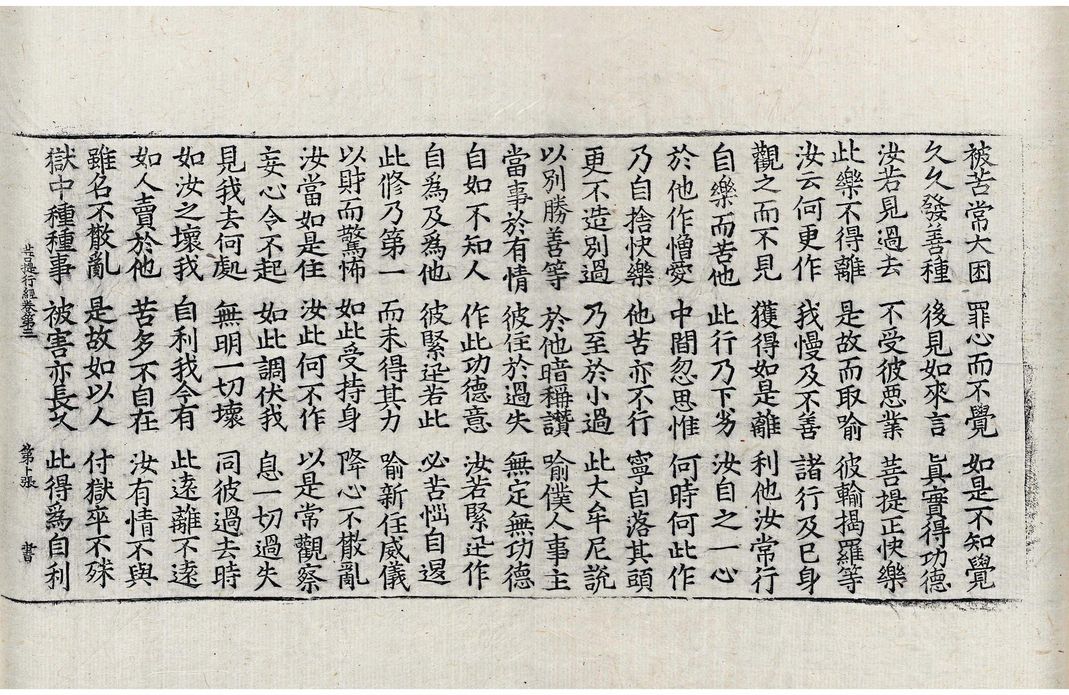 被苦常大困 罪心而不覺 如是不知覺
久久發善種 後見如來言 眞實得功德
汝若見過去 不受彼惡業 菩提正快樂
此樂不得離 是故而取喻 彼輸揭羅等
汝云何更作 我慢及不善 諸行及已身
觀之而不見 獲得如是離 利他汝常行
自樂而苦他 此行乃下劣 汝自之一心
於他作憎愛 中間忽思惟 何時何此作
乃自捨快樂 他苦亦不行 寧自落其頭
更不造別過 乃至於小過 此大牟尼説
以別勝善等 於他暗稱讚 喻僕人事主
當事於有情 彼住於過失 無定無功德
自如不知人 作此功德意 汝若緊迅作
自爲及爲他 彼緊迅若此 必苦惱自𨓏
此修乃第一 而未得其力 喻新住威儀
以財而驚怖 如此受持身 降心不散亂
汝當如是住 汝此何不作 以是常觀察
妄心令不起 如此調伏我 息一切過失
見我去何處 無明一切壞 同彼過去時
如汝之壞我 自利我令有 此遠離不遠
如人賣於他 苦多不自在 汝有情不與
雖名不散亂 是故如以人 付獄卒不殊
獄中種種事 被害亦長久 此得爲自利
菩提行經卷第三 第十張 書